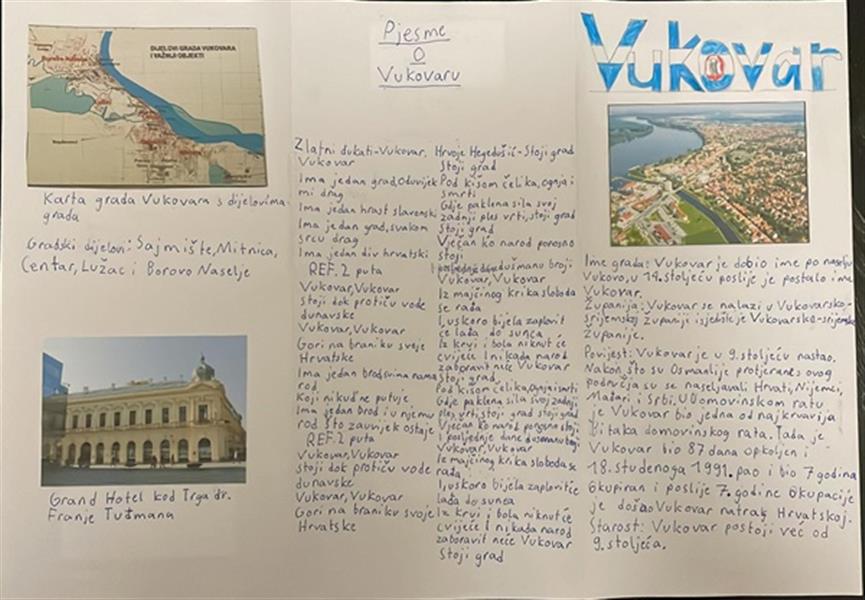 DIJELOVI GRADA VUKOVARA
I VAŽNIJI OBJEKTI
Karta grada Vukovara s dijelovima
grada
Gradski dijelovi: Sajmište, Mitnica,
Centar, Lužac i Borovo Naselje
Grand Hotel kod Trga dr.
Franje Tuđmana
Pjesme
O
Vukovaru
Zlatni dukati-Vukovar,
Vukovar
Ima jedan grad, Oduvijek
mi drag
Ima jedan hrast slavonski
Ima jedan grad, svakom
srcu drag
Ima jedan div hrvatski
REF. 2 puta
Vukovar, Vukovar
stoji dok protiču vode
dunavske
Vukovar, Vukovar
Gori na braniku svoje
Hrvatske
Ima jedan brod svima nama
rod
Koji nikud ne putuje
Ima jedan brod i u njemu
rod što zauvijek ostaje
REF. 2 puta
Vukovar, Vukovar
stoji dok protiču vode
dunavske
Vukovar, Vukovar
Gori na braniku svoje
Hrvatske
Hrvoje Hegedušić-Stoji grad
Stoji grad
Pod kišom čelika, ognja i
smrti
Gdje paklena sila svoj
zadnji ples vrti, stoji grad
Stoji grad
Vječan ko narod ponosno
stoji
dušmanu broji
Vukovar, Vukovar
Iz majčinog krika sloboda
se rađa
I, uskoro bijela zaplovit
će lađa do sunca
Iz krvi i bola niknut će
cvijeće I nikada narod
zaboravit neće Vukovar
Stoji grad
Pod kišom čelika, Ognja i smrti
Gdje paklena sila svoj zadnji
ples vrti, stoji grad stoji grad
Vječan ko narod ponosno stoji
I posljednje dane dušmanu broji
Vukovar, Vukovar
Iz majčinog krika sloboda se
rađa
I, uskoro bijela zaplovit će
lađa do sunca
Iz krvi i bola niknut će
cvijeće I nikada narod
zaboravit neće Vukovar
Stoji grad
Vukovar
Ime grada: Vukovar je dobio ime po naselju
Vukovo, u 14. stoljeću poslije je postalo ime
Vukovar.
Županija: Vukovar se nalazi u Vukovarsko-
srijemskoj Županiji i sjedište je Vukovarsko-srijemske
Županije.
Povijest: Vukovar je u 9. stoljeću nastao.
Nakon što su Osmanlije protjerane s ovog
područja su se naseljavali Hrvati, Nijemci,
Mađari i Srbi. U Domovinskom ratu
je Vukovar bio jedna od najkrvarija
bitaka domovinskog rata. Tada je
Vukovar bio 87 dana opkoljen i
18. studenoga 1991. pao i bio 7 godina
okupiran i poslije 7. godine okupacije
je došao Vukovar natrag Hrvatskoj.
Starost: Vukovar postoji već od
9. stoljeća.